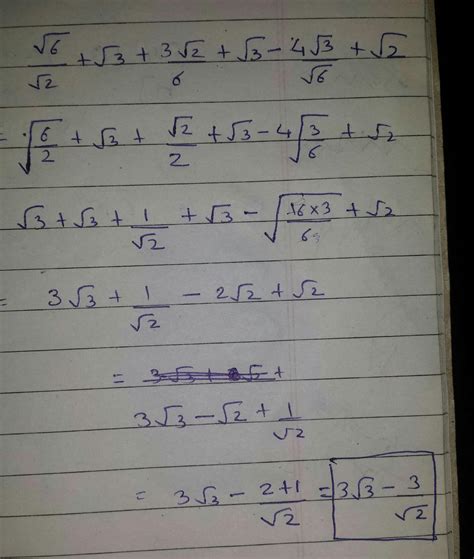 √6/√2 + √3 + 3√2/6 + √3 - 4√3/√6 + √2
= √(6/2) + √3 + √2/2 + √3 - 4√(3/6) + √2
√3 + √3 + 1/√2 + √3 - √(16×3/6) + √2
= 3√3 + 1/√2 - 2√2 + √2
=
+
3√3 - √2 + 1/√2
= 3√3 - 2+1/√2 = 3√3 - 3/√2